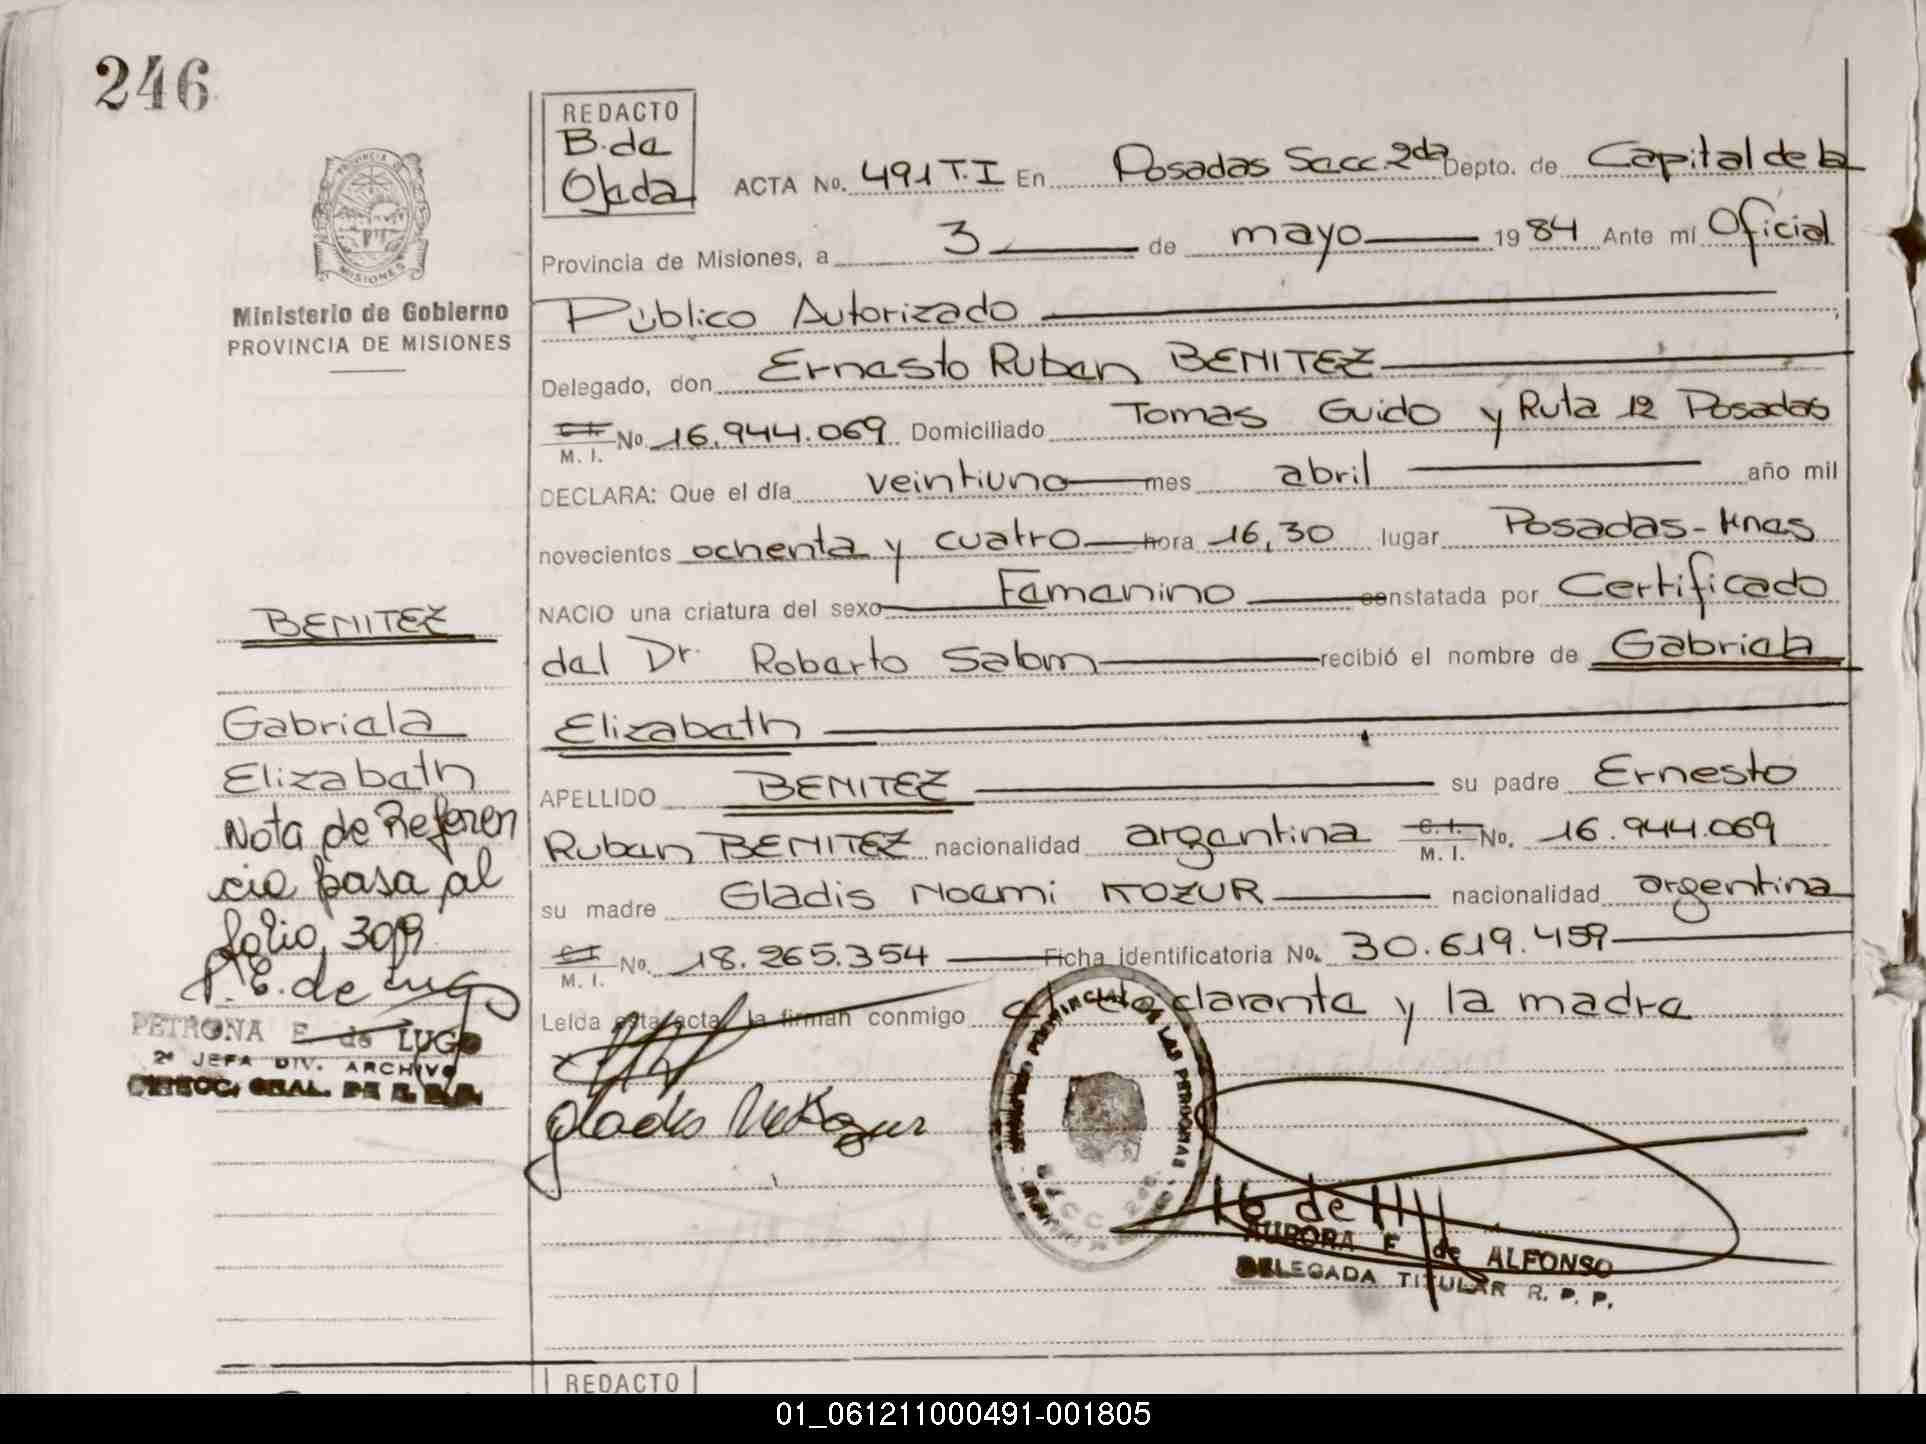 246
PROVINCIA DE
MISIONES
Ministerio de Gobierno
PROVINCIA DE MISIONES
REDACTO
B. de
Ojeda
ACTA No. 491 T.I En Posadas Secc. 2da Depto. de Capital de la
Provincia de Misiones, a 3 de mayo 1984 Ante mí Oficial
Público Autorizado
Delegado, don Ernesto Ruben BENITEZ
C.I. M.I. No. 16.944.069 Domiciliado Tomas Guido y Ruta 12 Posadas
DECLARA: Que el día veintiuno mes abril año mil
novecientos ochenta y cuatro hora 16,30 lugar Posadas-Mnes
NACIO una criatura del sexo Femenino constatada por Certificado
del Dr. Roberto recibió el nombre de Gabriela
Elizabeth
APELLIDO BENITEZ su padre Ernesto
Ruben BENITEZ nacionalidad argentina C.I. M.I. No. 16.944.069
su madre Gladis Noemi KOZUR nacionalidad argentina
C.I. M.I. No. 18.265.354 Ficha identificatoria No. 30.619.459
Leída esta acta, la firman conmigo el declarante y la madre
BENITEZ
Gabriela
Elizabeth
Nota de Referen
cia pasa al
folio 309
P. E. de Lugo
PETRONA E. de LUGO
2ª JEFA DIV. ARCHIVO
DIRECC. GRAL. DE R. P. P.
Gladis N. Kozur
PROVINCIAL DE LAS PERSONAS
SECC. 2da
16 de
AURORA F. de ALFONSO
DELEGADA TITULAR R. P. P.
REDACTO
01_061211000491-001805